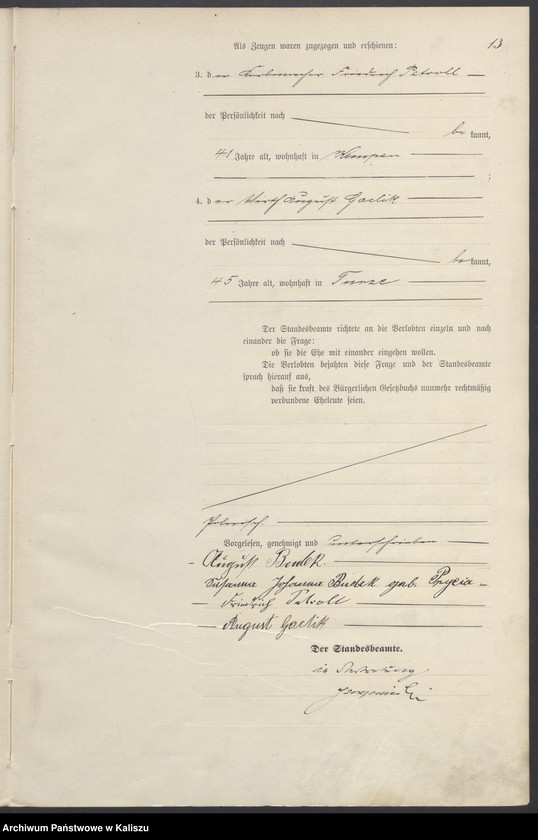 13
Als Zeugen waren zugezogen und erschienen:
3. der Friedrich Petroll
der Persönlichkeit nach
bekannt,
41 Jahre alt, wohnhaft in Kempen
;
4. der Wirth August Gaelik
der Persönlichkeit nach
bekannt,
45 Jahre alt, wohnhaft in Turze
Der Standesbeamte richtete an die Verlobten einzeln und nach
einander die Frage:
ob sie die Ehe mit einander eingehen wollen.
Die Verlobten bejahten diese Frage und der Standesbeamte
sprach hierauf aus,
daß sie kraft des Bürgerlichen Gesetzbuchs nunmehr rechtmäßig
verbundene Eheleute seien.
Vorgelesen, genehmigt und unterschrieben
August Budek.
Susanna Johanna Budek geb. Prycia
Friedrich Petroll
August Gaelik
Der Standesbeamte.
in Vertretung
Archiwum Państwowe w Kaliszu